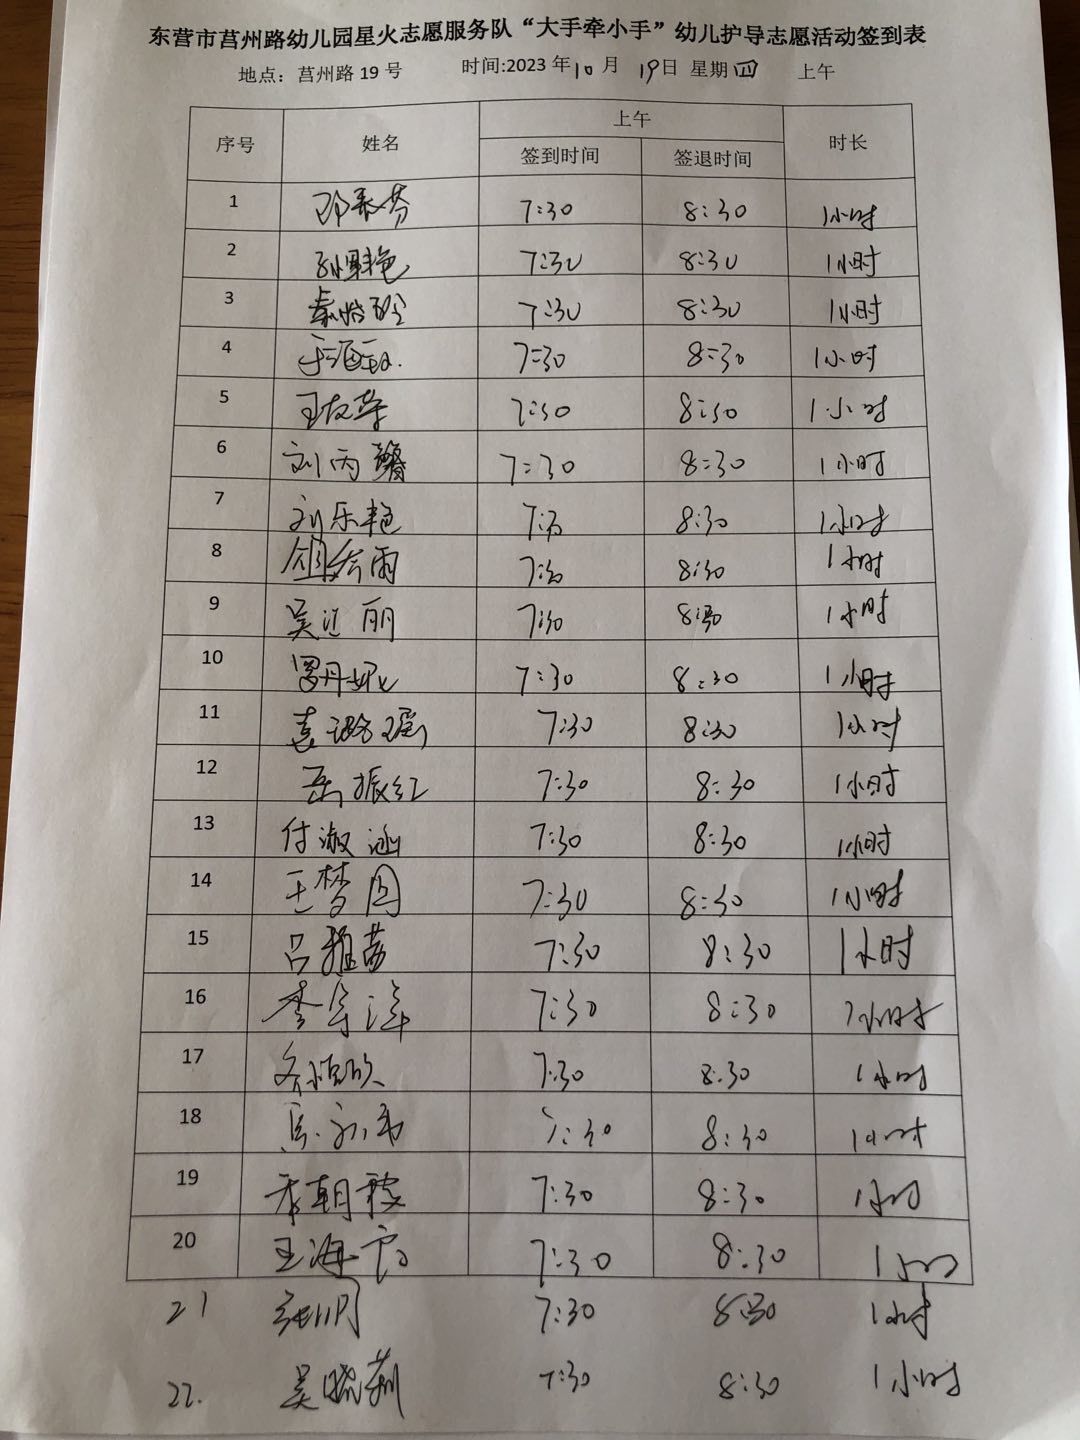 东营市莒州路幼儿园星火志愿服务队“大手牵小手”幼儿护导志愿活动签到表
地点：莒州路 19 号 时间:2023 年 10 月 19 日 星期 四 上午
序号 姓名 上午 时长
签到时间 签退时间
1 7:30 8:30 1小时
2 7:30 8:30 1小时
3 7:30 8:30 1小时
4 7:30 8:30 1小时
5 王友苹 7:30 8:30 1小时
6 刘丙馨 7:30 8:30 1小时
7 刘乐艳 7:30 8:30 1小时
8 7:30 8:30 1小时
9 吴迎丽 7:30 8:30 1小时
10 7:30 8:30 1小时
11 袁潞瑶 7:30 8:30 1小时
12 岳振红 7:30 8:30 1小时
13 付淑涵 7:30 8:30 1小时
14 王梦圆 7:30 8:30 1小时
15 吕雅茹 7:30 8:30 1小时
16 7:30 8:30 1小时
17 7:30 8:30 1小时
18 7:30 8:30 1小时
19 7:30 8:30 1小时
20 王海霞 7:30 8:30 1小时
21 7:30 8:30 1小时
22. 吴晓莉 7:30 8:30 1小时